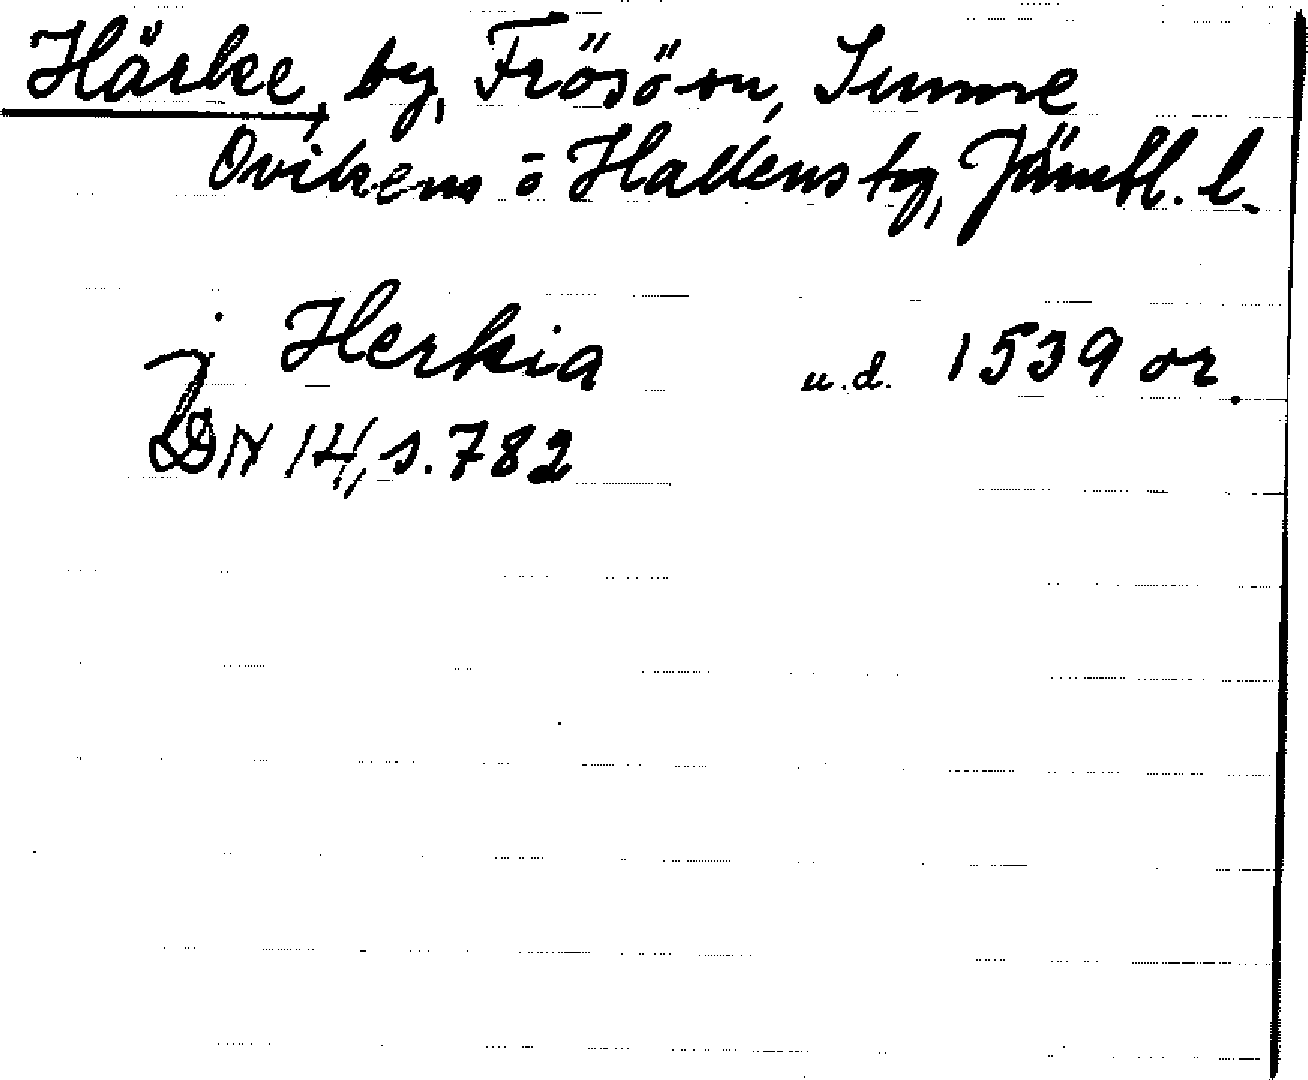 Härke, by, Frösö sn, Sunne
Ovikens o Hallens tg, Jämtl. l.
j Herkia u.d. 1539 or.
DN 14, s. 782